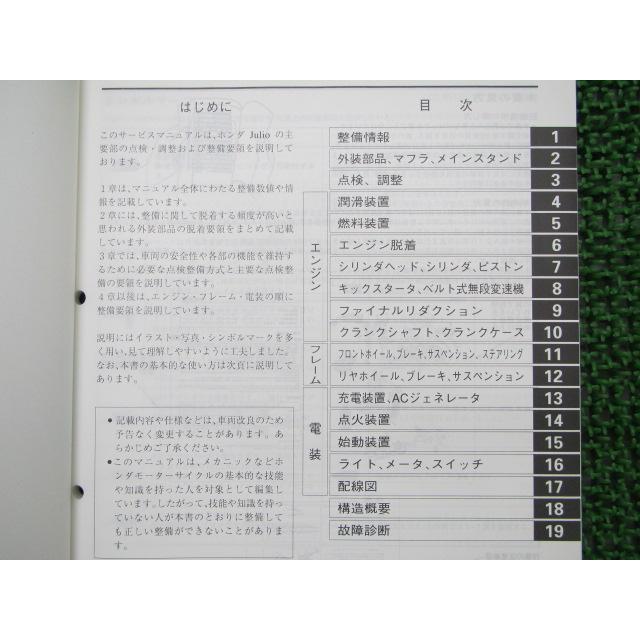 はじめに
このサービスマニュアルは、ホンダ Julio の主
要部の点検・調整および整備要領を説明して
おります。
1章は、マニュアル全体にわたる整備数値や情
報を記載しています。
2章には、整備に関して脱着する頻度が高いと
思われる外装部品の脱着要領をまとめて記載
しています。
3章では、車両の安全性や各部の機能を維持す
るために必要な点検整備方式と主要な点検整
備の要領を説明しています。
4章以後は、エンジン・フレーム・電装の順に
整備要領を説明しています。
説明にはイラスト・写真・シンボルマークを多
く用い、見て理解しやすいように工夫しました。
なお、本書の基本的な使い方は次頁に説明して
あります。
● 記載内容や仕様などは、車両改良のため
予告なく変更することがあります。あ
らかじめご了承ください。
● このマニュアルは、メカニックなどホ
ンダモーターサイクルの基本的な技能
や知識を持った人を対象として編集し
ています。したがって、技能や知識を持っ
ていない人が本書のとおりに整備して
も正しい整備ができないことがありま
す。
目 次
整備情報 1
外装部品、マフラ、メインスタンド 2
点検、調整 3
エンジン
潤滑装置 4
燃料装置 5
エンジン脱着 6
シリンダヘッド、シリンダ、ピストン 7
キックスタータ、ベルト式無段変速機 8
ファイナルリダクション 9
クランクシャフト、クランクケース 10
フレーム
フロントホイール、ブレーキ、サスペンション、ステアリング 11
リヤホイール、ブレーキ、サスペンション 12
電装
充電装置、ACジェネレータ 13
点火装置 14
始動装置 15
ライト、メータ、スイッチ 16
配線図 17
構造概要 18
故障診断 19